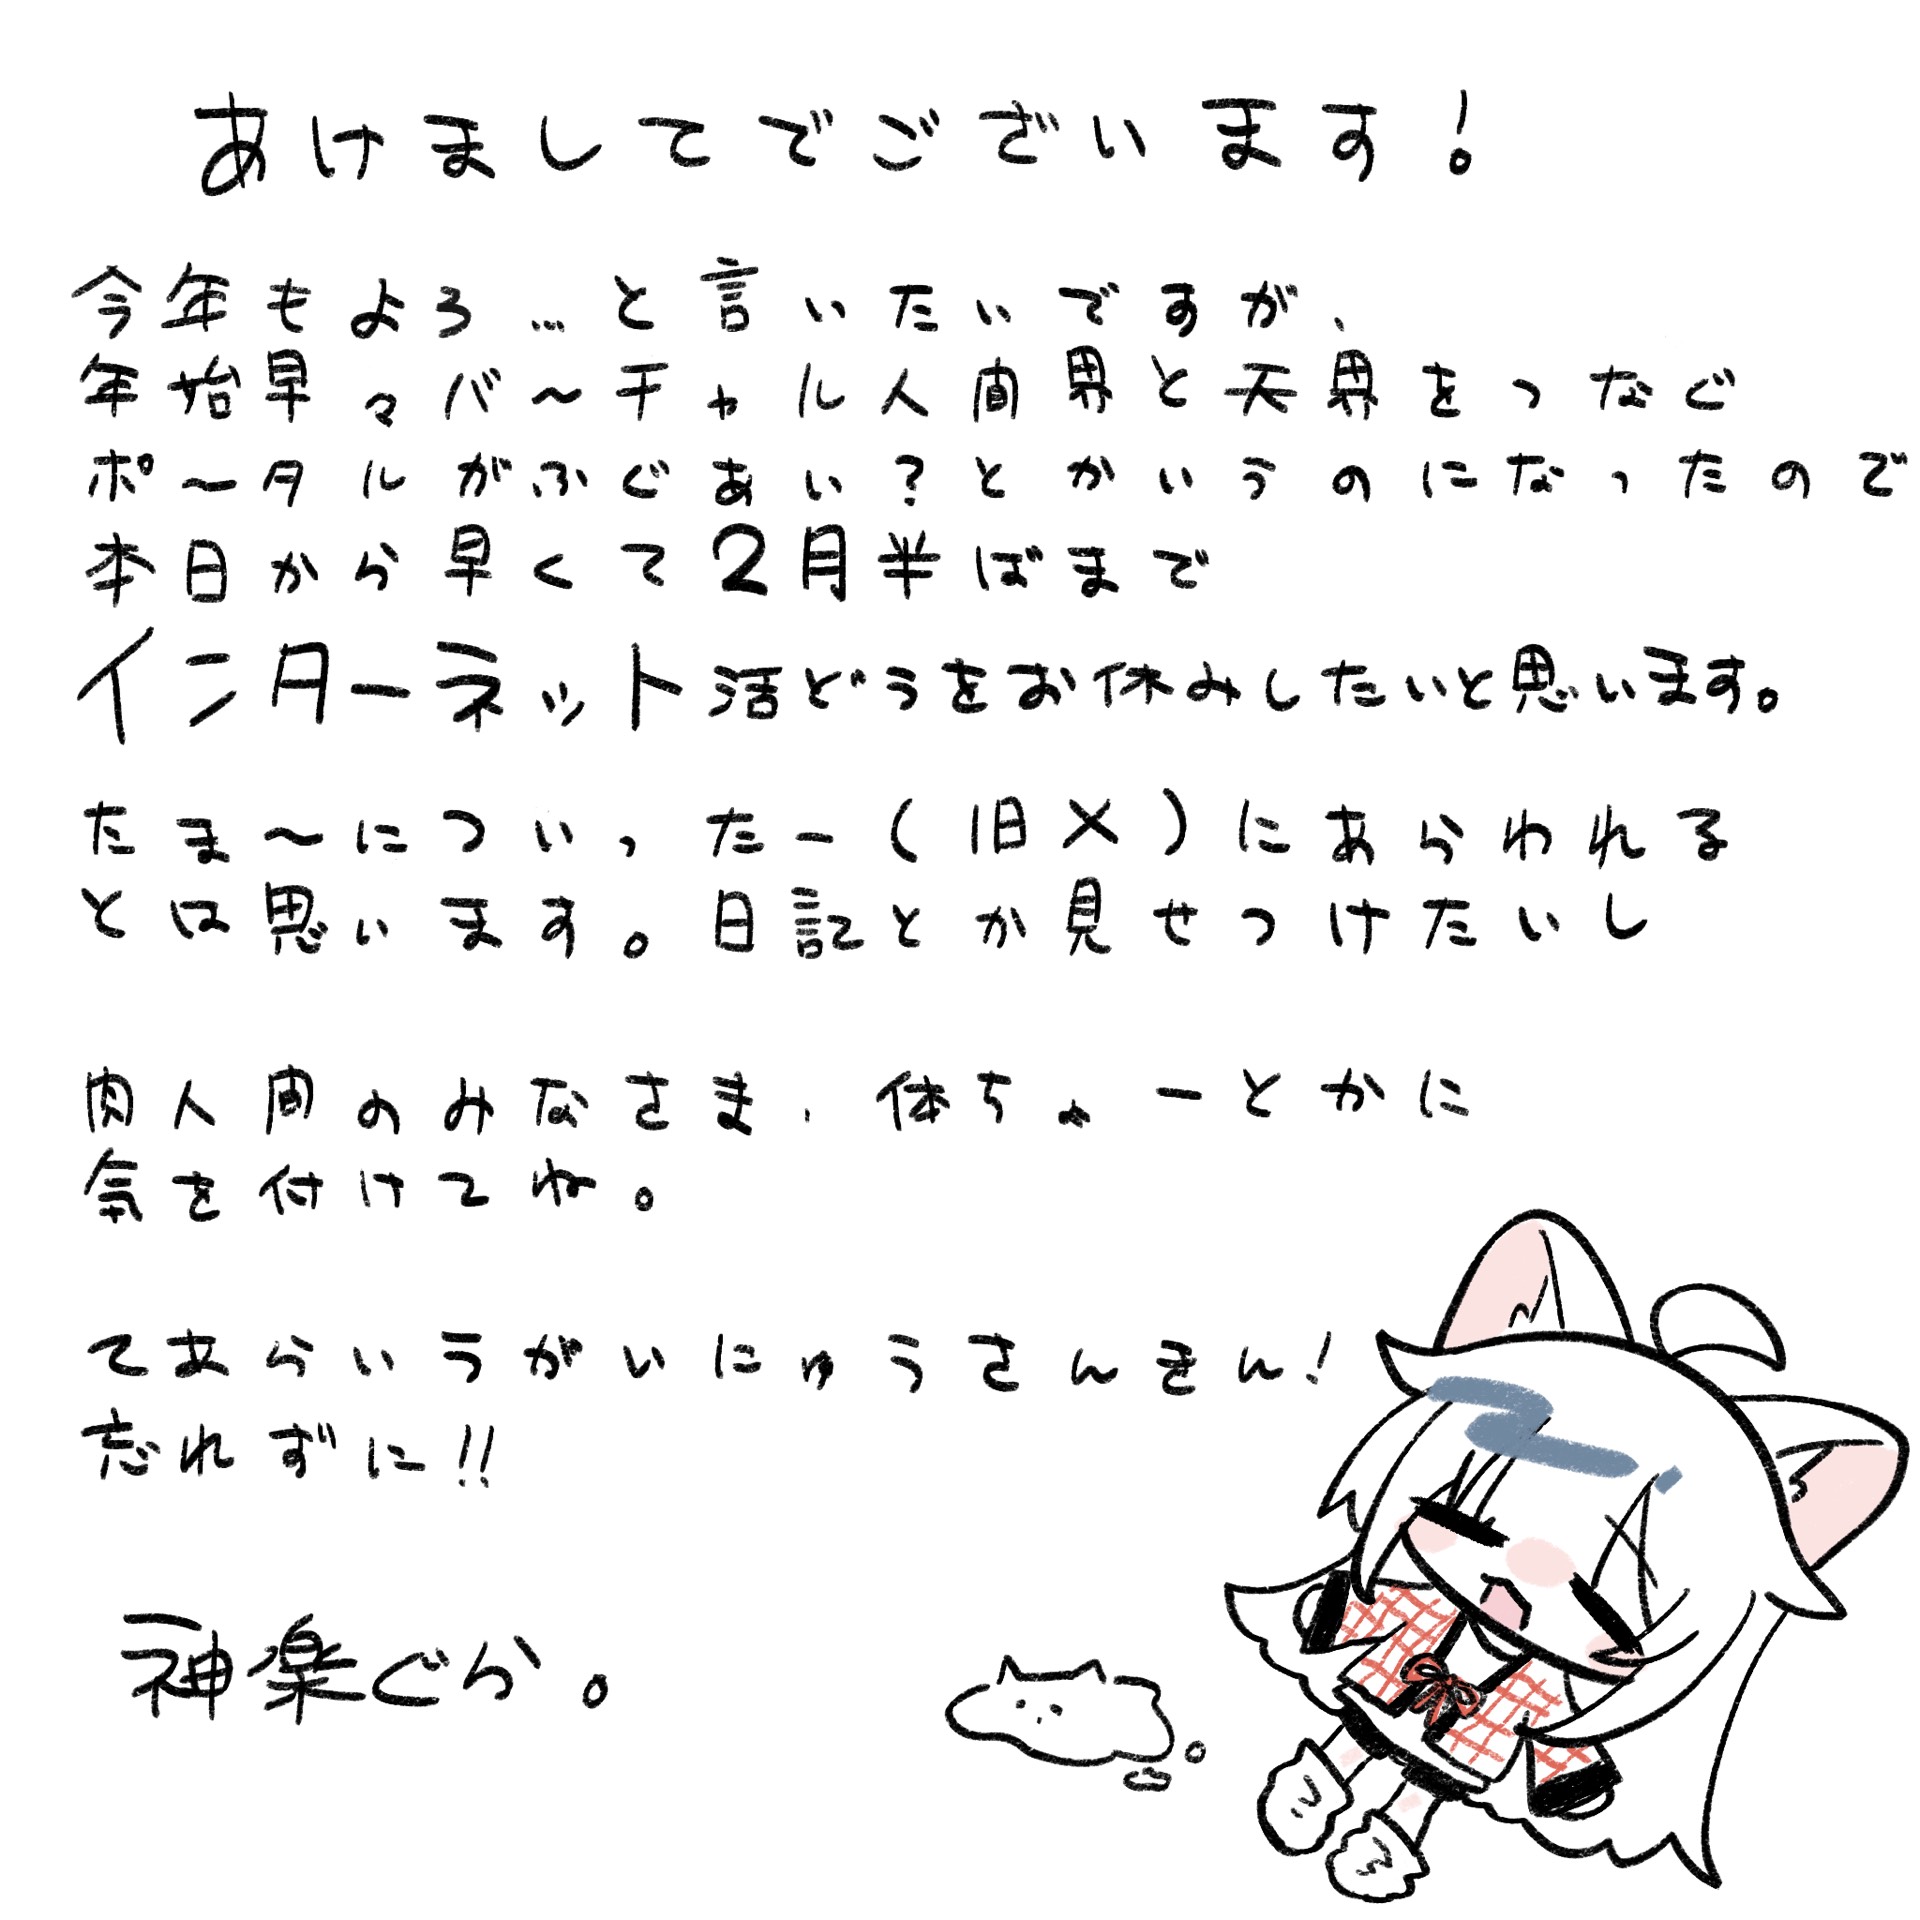 あけましてでございます！
今年もよろ…と言いたいですが、
年始早々バ〜チャル人間界と天界をつなぐ
ポ〜タルがふぐあい？とかいうのになったので
本日から早くて2月半ばまで
インターネット活どうをお休みしたいと思います。
たま〜についったー(旧X)にあらわれる
とは思います。日記とか見せつけたいし
肉人間のみなさま、体ちょーとかに
気を付けてね。
てあらいうがいにゅうさんきん！
忘れずに!!
神楽ぐら。